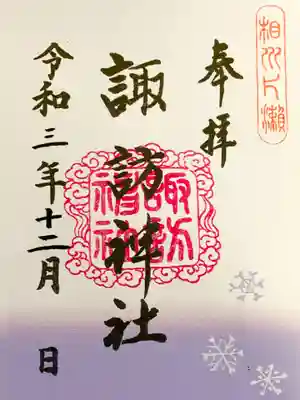 相州片瀬
奉拝
諏訪神社
令和三年十二月 日